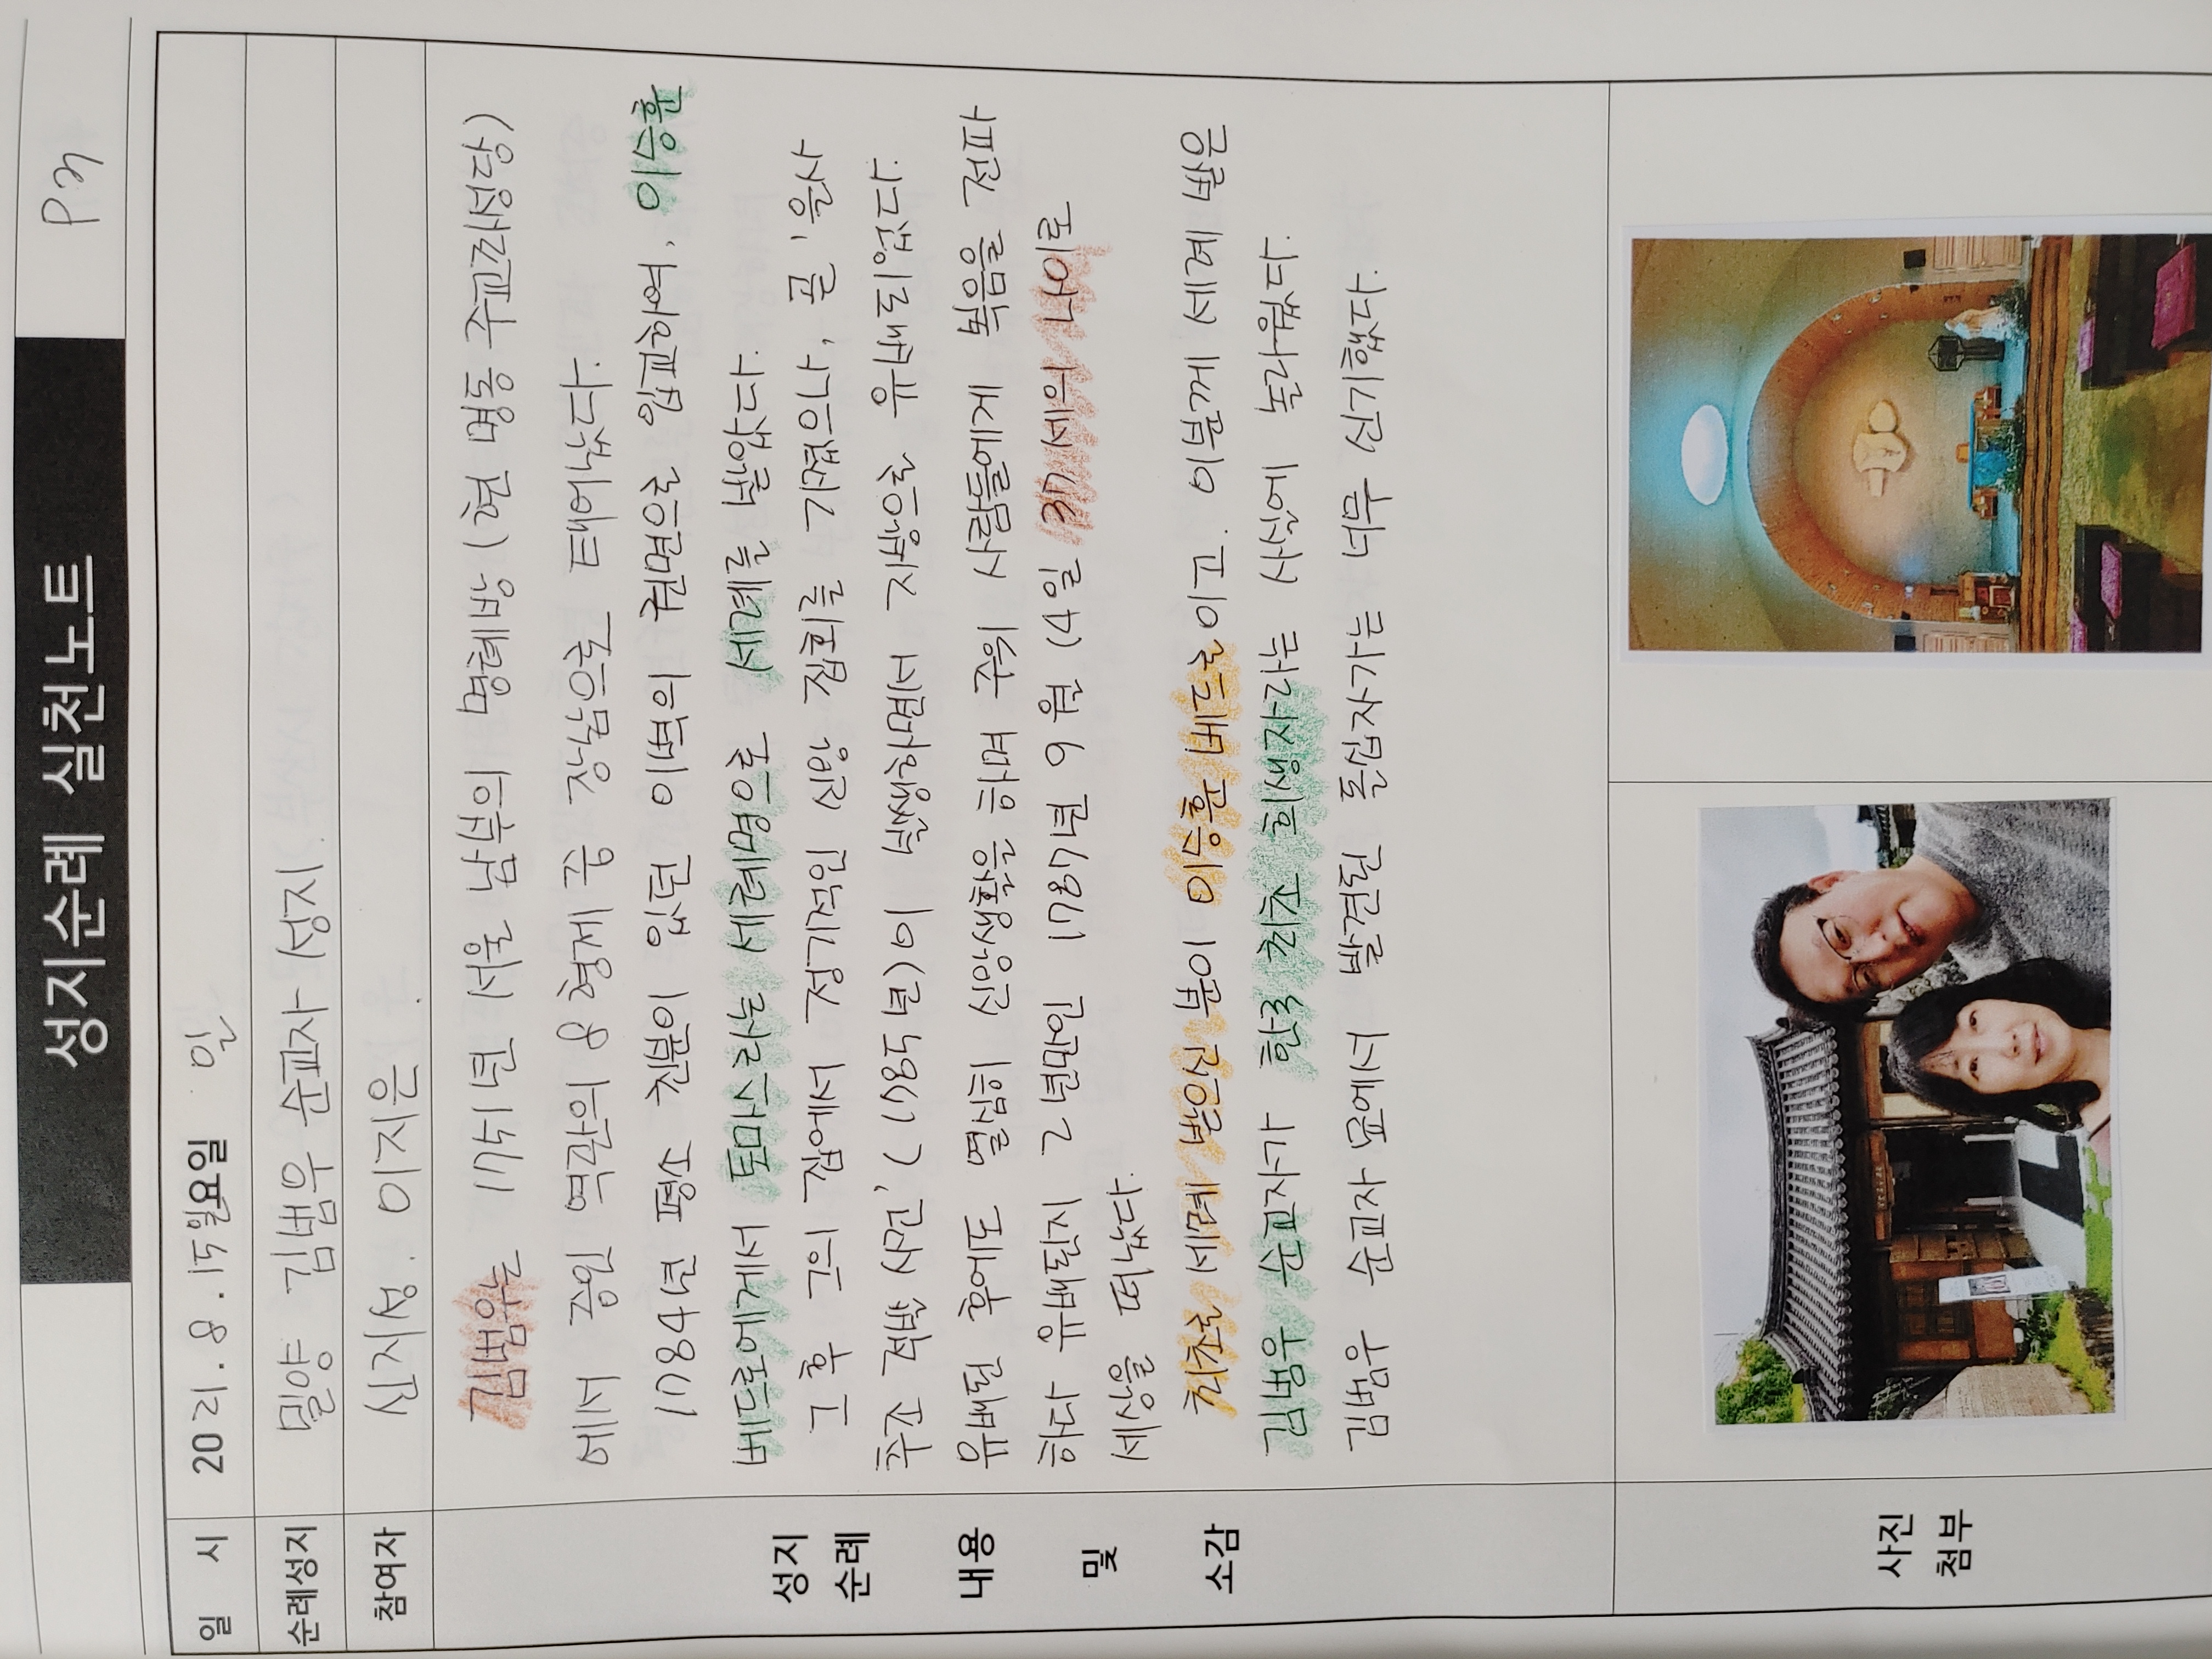 성지순례 실천노트
P 3
일 시 2021. 8. 15일요일 일
순례성지 밀양 김범우 순교자 성지.
참여자 신지성. 이지은.
성지
순례
내용
및
소감
김범우는 1751년 서울 남부의 명혜방 (현 명동 주교좌성당)
에서 중인 역관의 8형제 중 장남으로 태어났다.
1784년 평소 친분이 있던 이벽의 권면으로 입교하여, 이승훈
베드로에게서 토마스라는 세례명으로 세례를 받았다.
그 후 그의 집에서 정기적인 신앙 집회를 가졌으나, 곧 '을사
추조 적발 사건' (1785년)이 발생하면서 지방으로 유배되었다.
유배된 후에도 열심히 신앙생활을 하며 주위 사람들에게 복음을 전파
하다 유배된지 2년만인 1787년 9월 14일 37세의 나이로
세상을 떠났다.
최초로 세례 받으신 분이 이승훈 베드로이고, 이분께 세례 받은
김범우 순교자가 한국 최초 희생자라는 사실에 놀라웠다.
김범우 순교자 묘에서 발견된 돌십자가는 너무 신기했다.
사진
첨부